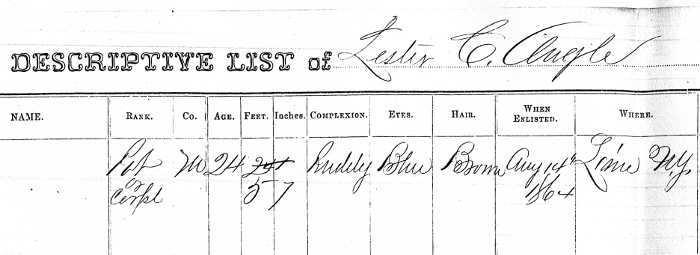 DESCRIPTIVE LIST of Lester C. Angle
NAME. RANK. Co. AGE. FEET. Inches. COMPLEXION. EYES. HAIR. WHEN ENLISTED. WHERE.
Pvt M 24 Ruddy Blue Brown Aug 14th Lima N.Y.
or 5 7 1864
Corpl